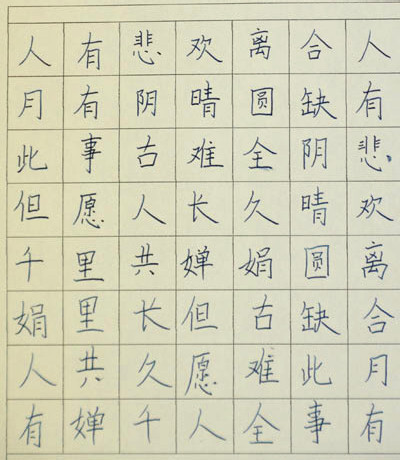 人有悲欢离合人
月有阴晴圆缺有
此事古难全阴悲
但愿人长久晴欢
千里共婵娟圆离
娟里长但古缺合
人共久愿难此月
有婵千人全事有